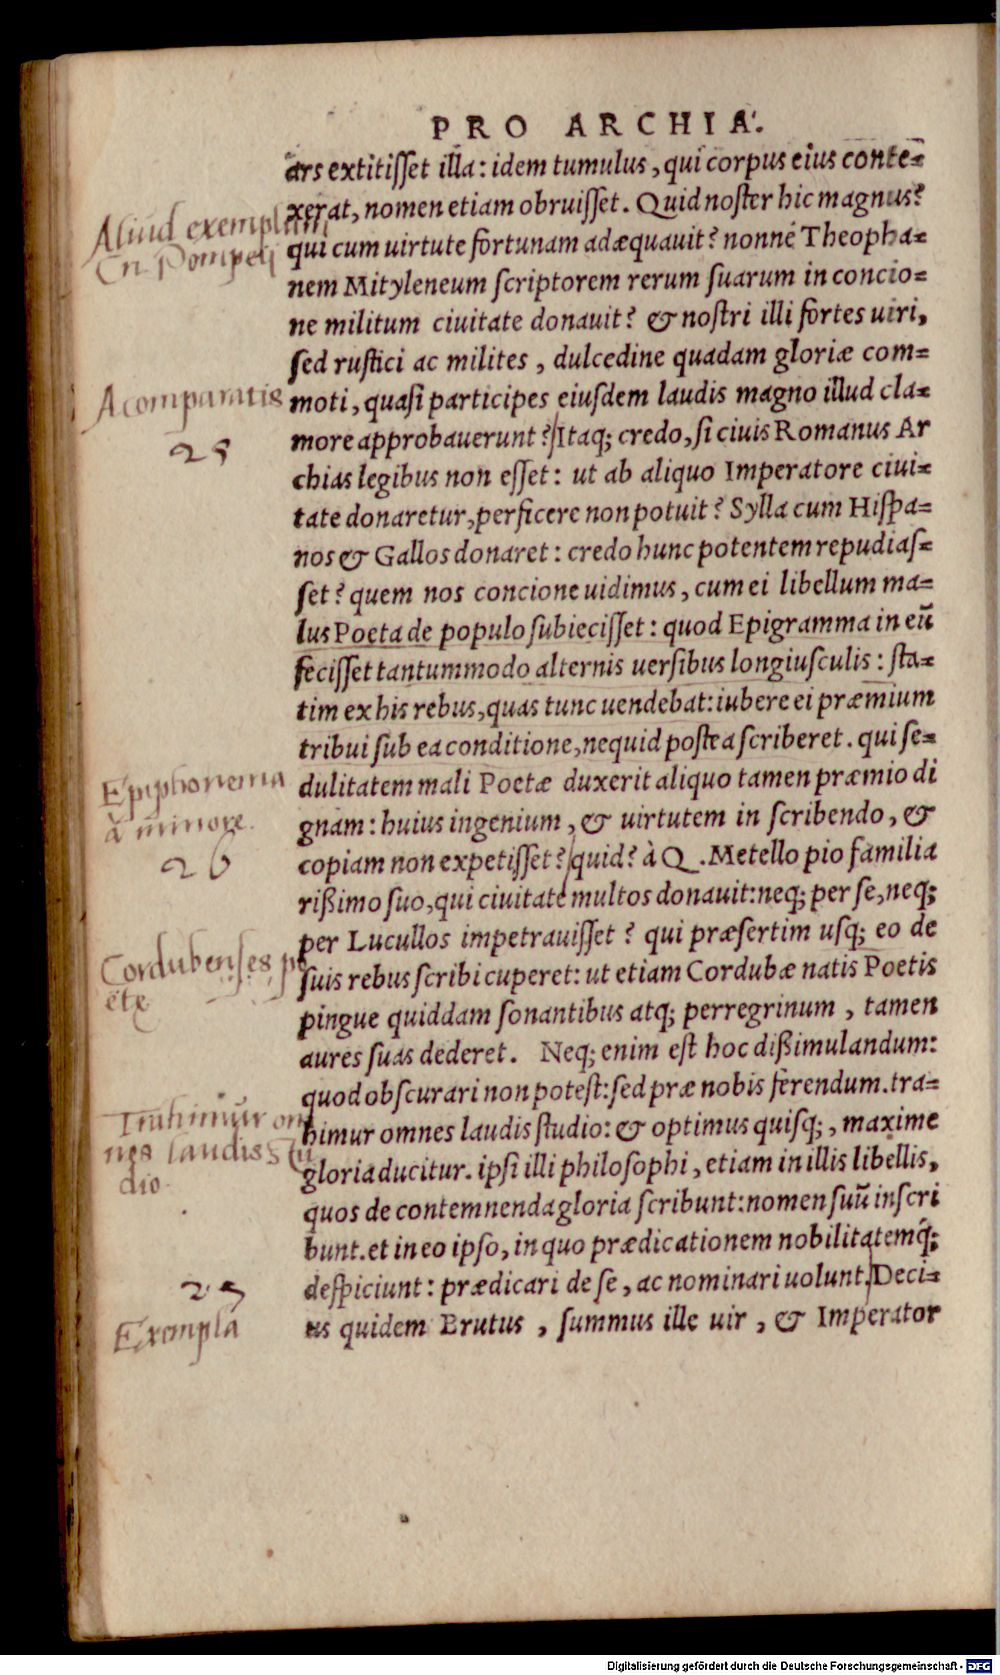 PRO ARCHIA.
ars extitiſſet illa: idem tumulus, qui corpus eius conte=
xerat, nomen etiam obruiſſet. Quid noſter hic magnus?
qui cum uirtute fortunam adæquauit? nonné Theopha=
nem Mityleneum ſcriptorem rerum ſuarum in concio=
ne militum ciuitate donauit? & noſtri illi fortes uiri,
ſed ruſtici ac milites, dulcedine quadam gloriæ com=
moti, quaſi participes eiuſdem laudis magno illud cla=
more approbauerunt? Itaq; credo, ſi ciuis Romanus Ar
chias legibus non eſſet: ut ab aliquo Imperatore ciui=
tate donaretur, perficere non potuit? Sylla cum Hiſpa=
nos & Gallos donaret: credo hunc potentem repudiaſ=
ſet? quem nos concione uidimus, cum ei libellum ma=
lus Poeta de populo ſubieciſſet: quod Epigramma in eū
feciſſet tantummodo alternis uerſibus longiuſculis: ſta=
tim ex his rebus, quas tunc uendebat: iubere ei præmium
tribui ſub ea conditione, nequid poſtea ſcriberet. qui ſe=
dulitatem mali Poetæ duxerit aliquo tamen præmio di
gnam: huius ingenium, & uirtutem in ſcribendo, &
copiam non expetiſſet? quid? à Q. Metello pio familia
rißimo ſuo, qui ciuitate multos donauit: neq; per ſe, neq;
per Lucullos impetrauiſſet? qui præſertim uſq; eo de
ſuis rebus ſcribi cuperet: ut etiam Cordubæ natis Poetis
pingue quiddam ſonantibus atq; perregrinum, tamen
aures ſuas dederet. Neq; enim eſt hoc dißimulandum:
quod obſcurari non poteſt: ſed præ nobis ferendum. tra=
himur omnes laudis ſtudio: & optimus quiſq;, maxime
gloria ducitur. ipſi illi philoſophi, etiam in illis libellis,
quos de contemnenda gloria ſcribunt: nomen ſuū inſcri
bunt. et in eo ipſo, in quo prædicationem nobilitatemq́;
deſpiciunt: prædicari de ſe, ac nominari uolunt. Deci=
us quidem Brutus, ſummus ille uir, & Imperator
Aliud exemplum
Cn Pompeij
A comparatis
25
Epiphonema
à minore.
26
Cordubenſes po
ëtę
Trahimur om
nes laudis ſtu
dio.
27
Exempla
Digitalisierung gefördert durch die Deutsche Forschungsgemeinschaft - DFG